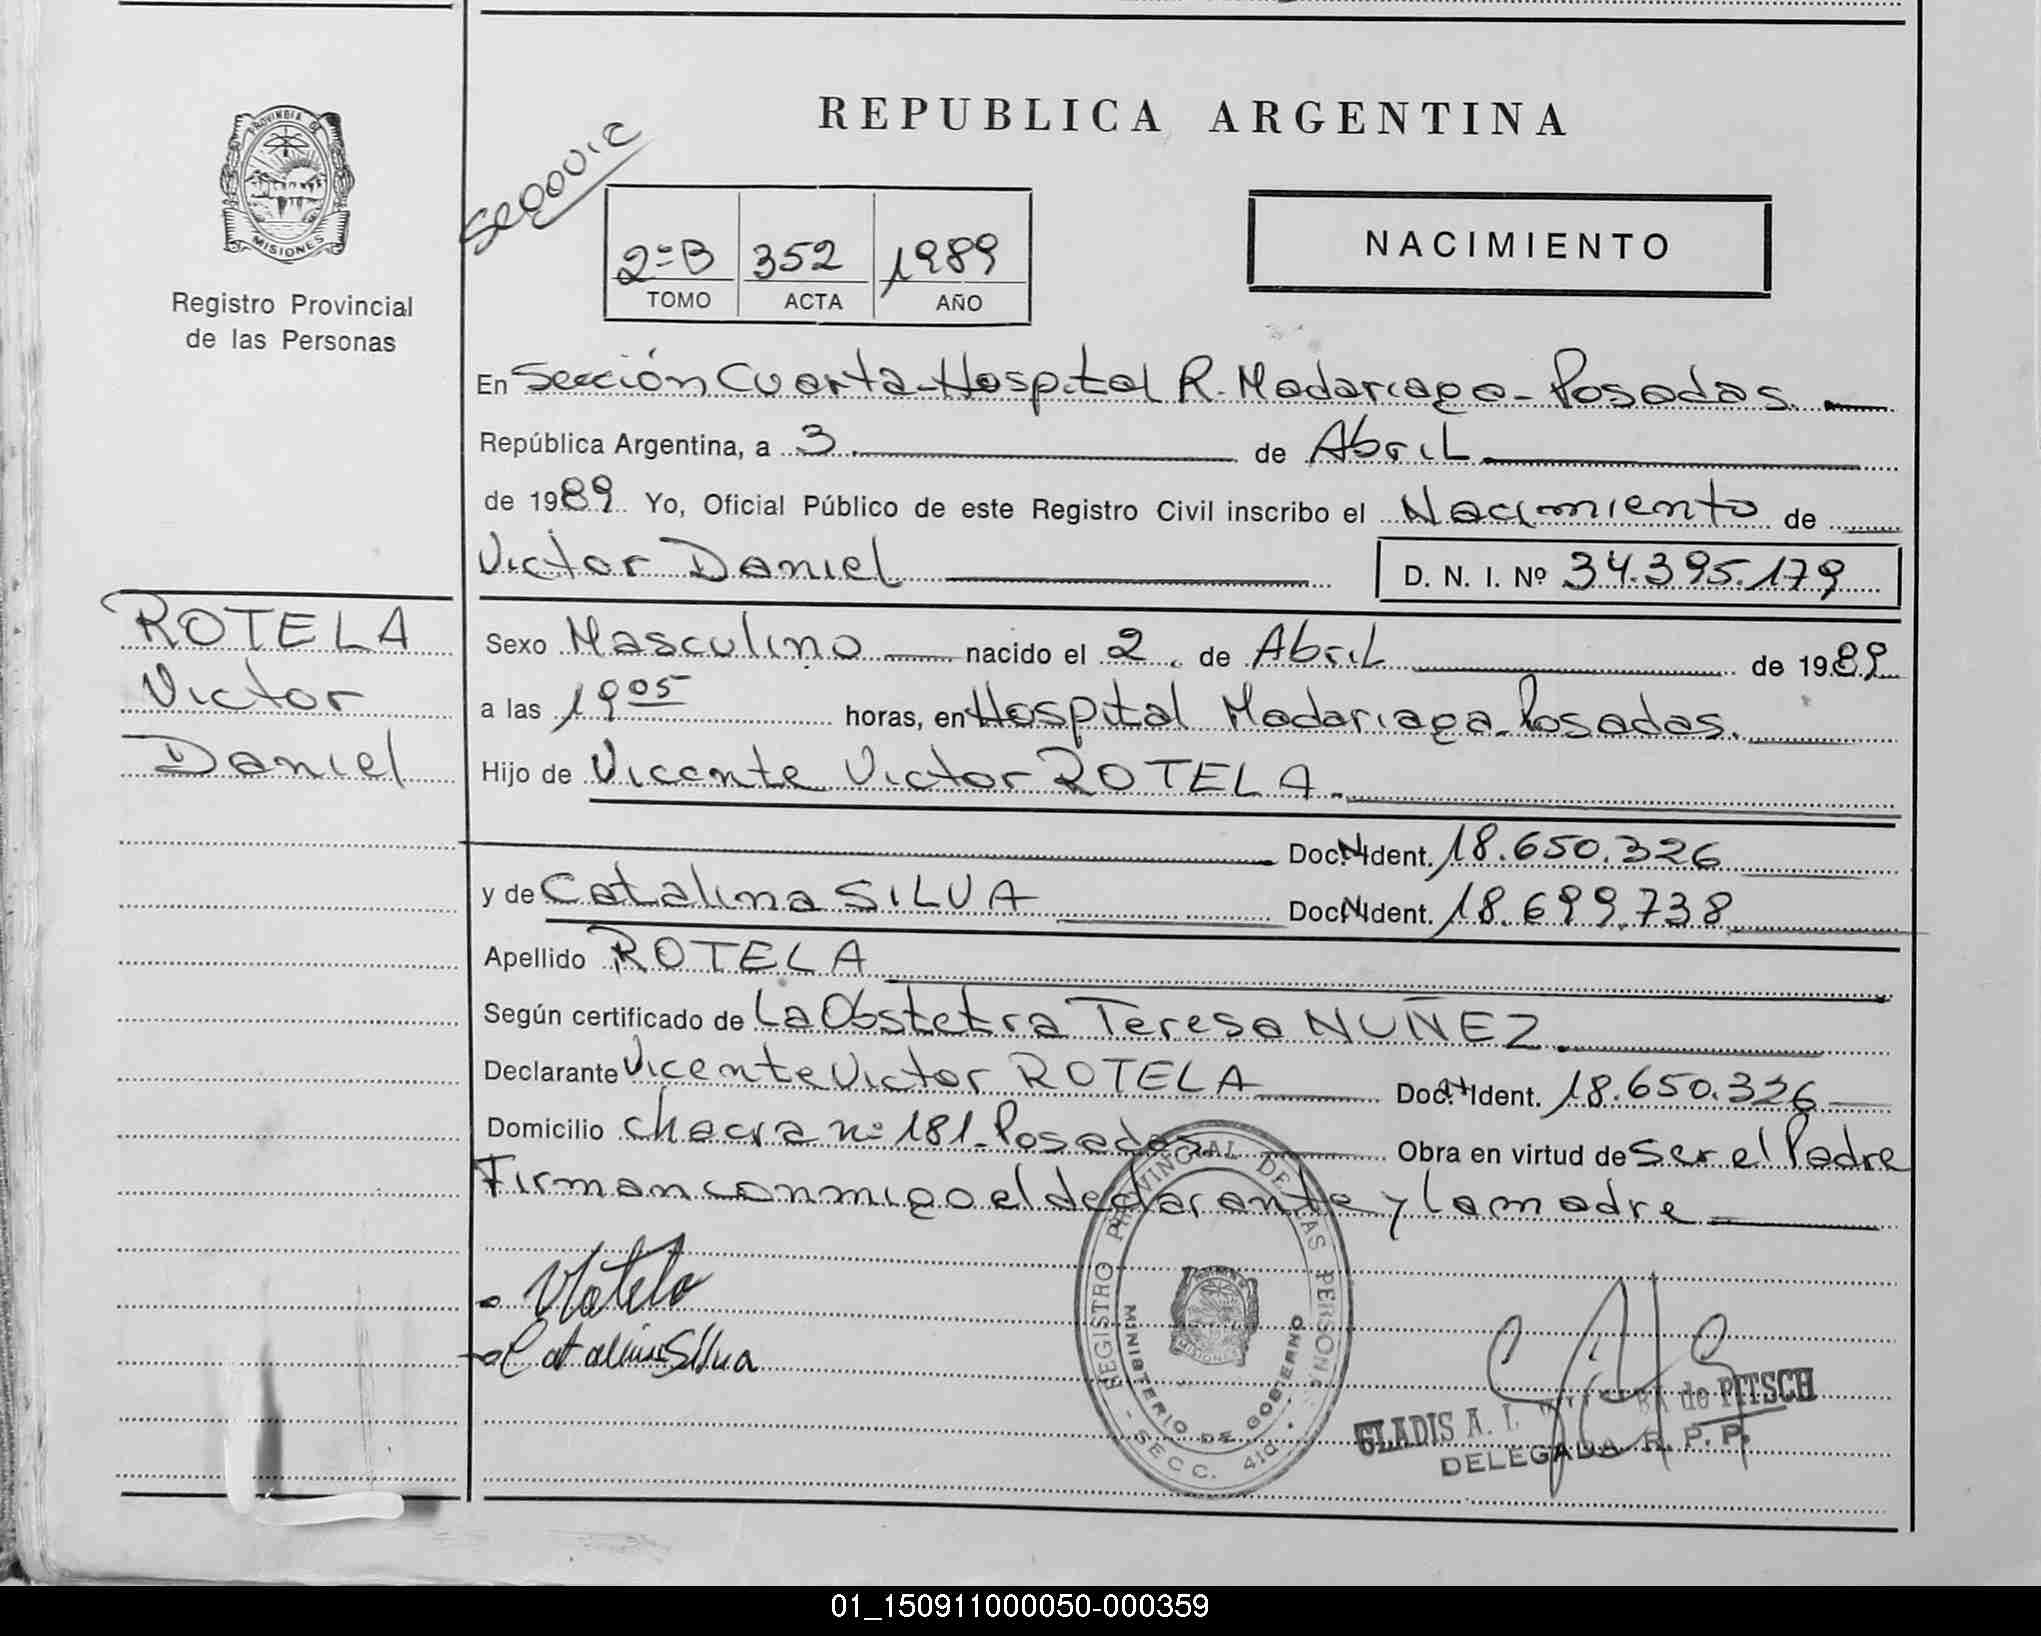 REPUBLICA ARGENTINA
PROVINCIA DE
MISIONES
Registro Provincial
de las Personas
2º B 352 1989
TOMO ACTA AÑO
NACIMIENTO
En Sección Cuarta-Hospital R. Madariaga-Posadas.
República Argentina, a 3 de Abril
de 1989 Yo, Oficial Público de este Registro Civil inscribo el Nacimiento de
Victor Daniel D. N. I. Nº 34.395.179
ROTELA
Victor
Daniel
Sexo Masculino nacido el 2 de Abril de 1989
a las 19 05 horas, en Hospital Madariaga-Posadas.
Hijo de Vicente Victor ROTELA.
Doc. N. Ident. 18.650.326
y de Catalina SILVA Doc. N. Ident. 18.699.738
Apellido ROTELA
Según certificado de La Obstetra Teresa NUÑEZ.
Declarante Vicente Victor ROTELA Doc. N. Ident. 18.650.326
Domicilio Chacra nº 181-Posadas Obra en virtud de Ser el Padre
Firman conmigo el declarante y la madre
VRotela
Catalina Silva
REGISTRO PROVINCIAL DE LAS PERSONAS
MINISTERIO DE GOBIERNO
MISIONES
- SECC. 4ta. -
GLADIS A. de PITSCH
DELEGADA R. P. P.
01_150911000050-000359